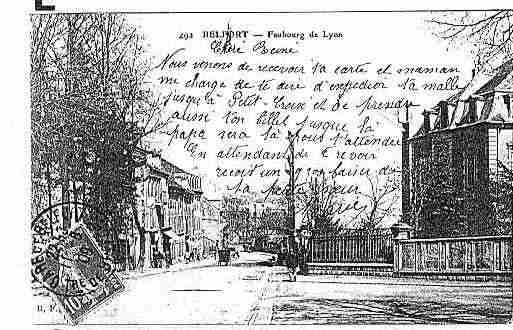 292 BELFORT — Faubourg de Lyon
Chère Reine
Nous venons de recevoir ta carte et maman
me charge de te dire d'expedier ta malle
jusqu'à Petit-Croix et de prendre
aussi ton billet jusque là
papa sera là pour t'attendre
En attendant de te revoir
reçoit un gros baiser de
ta petite sœur